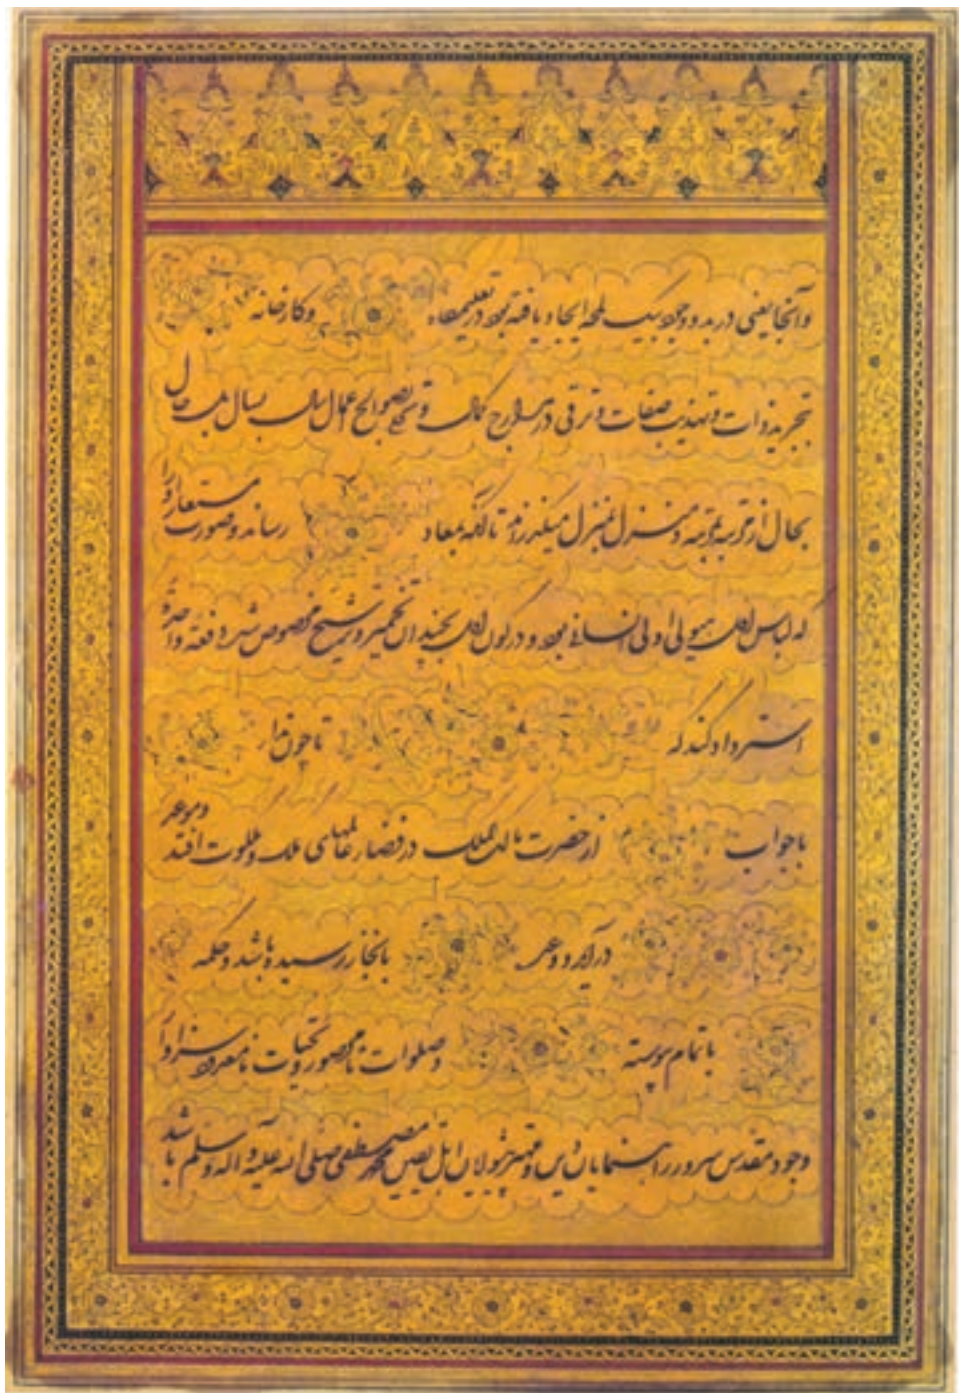 و آنجا یعنی در بدو وجود بیک لمحه ایجاد یافته بود در تعلیمگاه و کارخانه
تجرید ذات و تهذیب صفات و ترقی در مدارج کمال و تحلی بصوالح اعمال سال بسال و حال
بحال از مرتبه بمرتبه و منزل بمنزل میگذرند تا آنکه بمعاد رساند و صورت مستعار را
که لباس آن هیولی اولی انسانی بود و در کون آن بچندان تخمیر و ترشیح مخصوص شد دفعة واحدة
استرداد کند که تا چون ندا
با جواب از حضرت مالک الملک در فضاء عالمهای ملک و ملکوت افتد و موعد
درآید و وعد بانجاز رسیده باشد و حکمه
باتمام پیوسته و صلوات نامحصور و تحیات نامعدود سزاوار
وجود مقدس سرور راهنمایان دین و مهتر اهل یقین محمد مصطفی صلی الله علیه و آله و سلم باشد